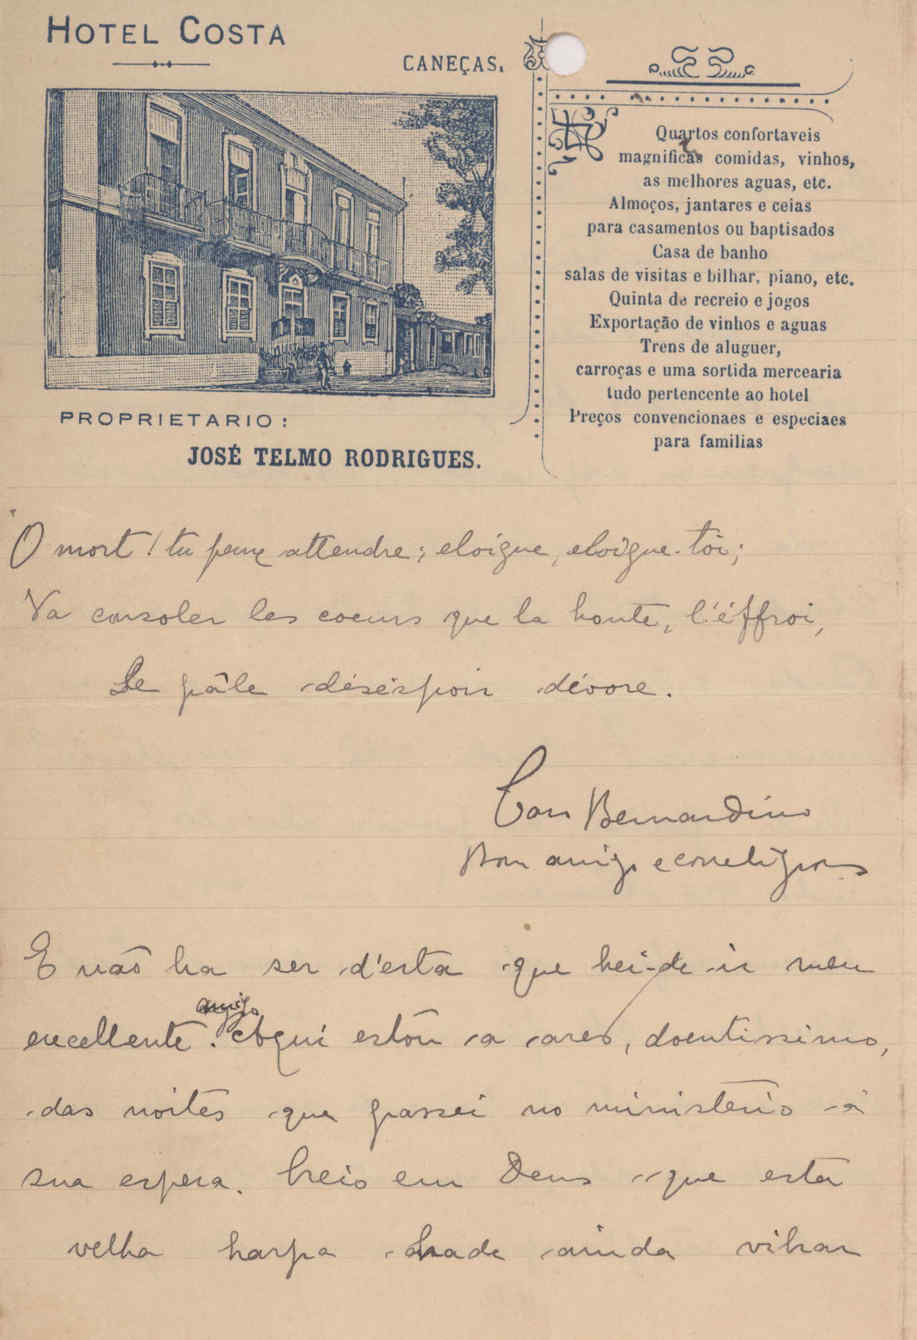 HOTEL COSTA
CANEÇAS.
PROPRIETARIO:
JOSÉ TELMO RODRIGUES.
Quartos confortaveis
magnificas comidas, vinhos,
as melhores aguas, etc.
Almoços, jantares e ceias
para casamentos ou baptisados
Casa de banho
salas de visitas e bilhar, piano, etc.
Quinta de recreio e jogos
Exportação de vinhos e aguas
Trens de aluguer,
carroças e uma sortida mercearia
tudo pertencente ao hotel
Preços convencionaes e especiaes
para familias
O mort! tu peux attendre; eloigne, eloigne-toi;
Va consoler les coeurs que la honte, l'éffroi,
Le pâle désespoir dévore.
Caro Bernardino
Bom amigo e correligion
E não ha ser d'esta que hei-de ir meu
excellente amigo. Aqui estou a ares, doentissimo,
das noites que passei no ministerio á
sua espera. Creio em Deus que esta
velha harpa hade ainda vibrar